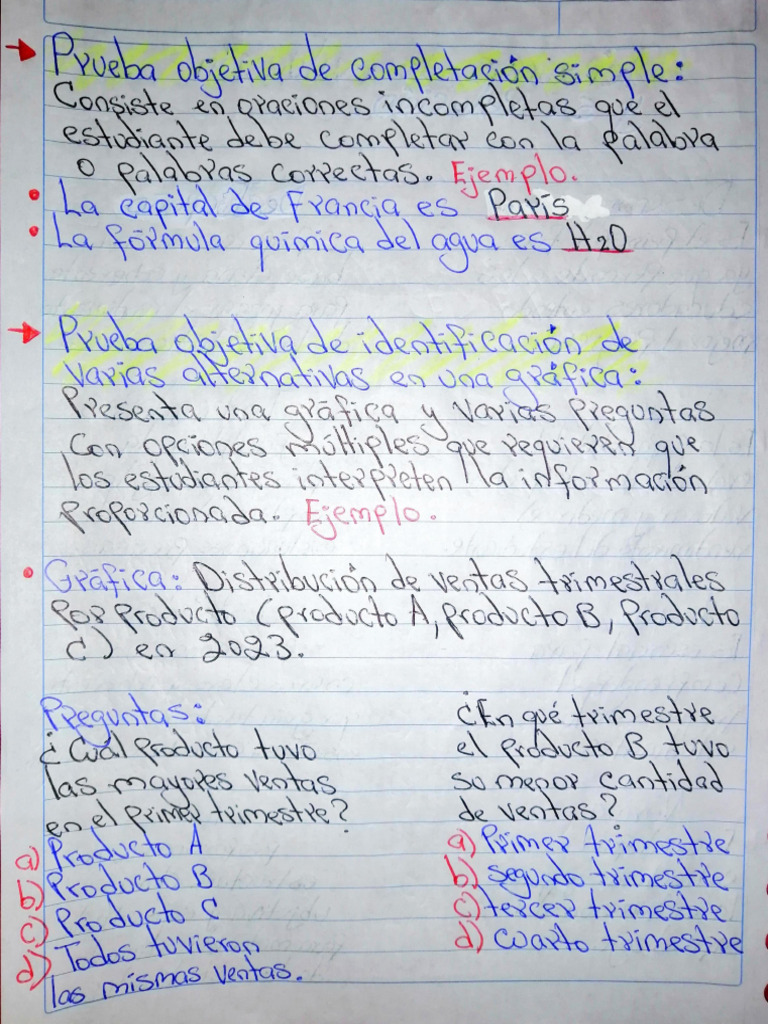 Prueba objetiva de completación simple:
Consiste en oraciones incompletas que el
estudiante debe completar con la palabra
o palabras correctas. Ejemplo.
La capital de Francia es París
La fórmula química del agua es H₂O
Prueba objetiva de identificación de
varias alternativas en una gráfica:
Presenta una gráfica y varias preguntas
con opciones múltiples que requieren que
los estudiantes interpreten la información
proporcionada. Ejemplo.
Gráfica: Distribución de ventas trimestrales
por producto (producto A, producto B, producto
C) en 2023.
Preguntas:
¿Cuál producto tuvo
las mayores ventas
en el primer trimestre?
a) Producto A
b) Producto B
c) Producto C
d) Todos tuvieron
las mismas ventas.
¿En qué trimestre
el producto B tuvo
su menor cantidad
de ventas?
a) Primer trimestre
b) segundo trimestre
c) tercer trimestre
d) cuarto trimestre